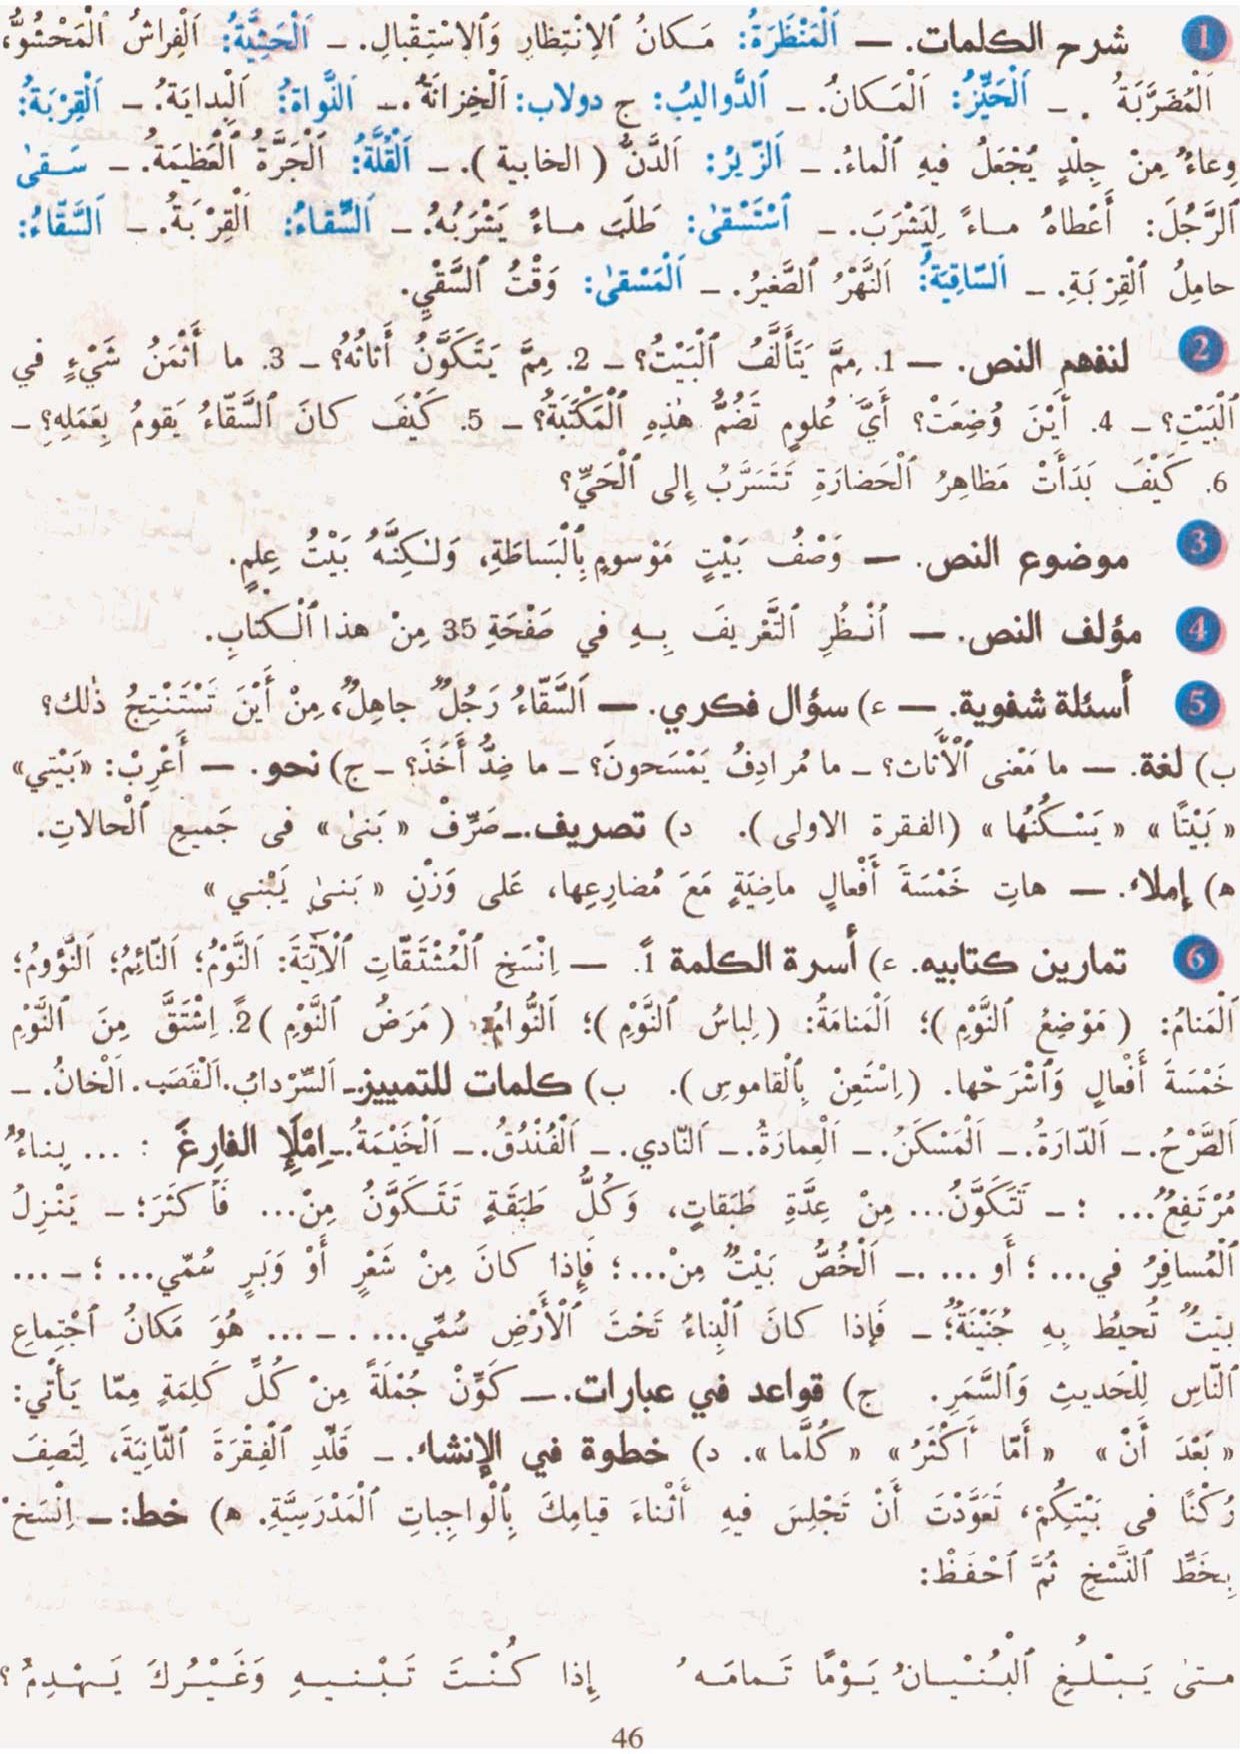 1 شرح الكلمات. — اَلْمَنْظَرَةُ: مَكانُ ٱلِانْتِظارِ وَٱلِاسْتِقْبالِ. – اَلْحَشِيَّةُ: اَلْفِراشُ ٱلْمَحْشُوُّ،
اَلْمُضَرَّبَةُ. – اَلْحَيِّزُ: اَلْمَكانُ. – اَلدَّواليبُ: ج دولاب: اَلْخِزانَةُ. – اَلنَّواةُ: اَلْبِدايَةُ. – اَلْقِرْبَةُ:
وِعاءٌ مِنْ جِلْدٍ يُجْعَلُ فيهِ ٱلْماءُ. – اَلزّيرُ: اَلدَّنُّ ( الخابية ). – اَلْقُلَّةُ: اَلْجَرَّةُ ٱلْعَظيمَةُ. – سَقىٰ
ٱلرَّجُلَ: أَعْطاهُ ماءً لِيَشْرَبَ. – اَسْتَسْقىٰ: طَلَبَ ماءً يَشْرَبُهُ. – اَلسِّقاءُ: اَلْقِرْبَةُ. – اَلسَّقّاءُ:
حامِلُ ٱلْقِرْبَةِ. – اَلسّاقِيَةُ: اَلنَّهْرُ ٱلصَّغيرُ. – اَلْمَسْقىٰ: وَقْتُ ٱلسَّقْيِ.
2 لنفهم النص. — 1. مِمَّ يَتَأَلَّفُ ٱلْبَيْتُ؟ – 2. مِمَّ يَتَكَوَّنُ أَثاثُهُ؟ – 3. ما أَثْمَنُ شَيْءٍ في
ٱلْبَيْتِ؟ – 4. أَيْنَ وُضِعَتْ؟ أَيَّ عُلومٍ تَضُمُّ هٰذِهِ ٱلْمَكْتَبَةُ؟ – 5. كَيْفَ كانَ ٱلسَّقّاءُ يَقومُ بِعَمَلِهِ؟ –
6. كَيْفَ بَدَأَتْ مَظاهِرُ ٱلْحَضارَةِ تَتَسَرَّبُ إِلى ٱلْحَيِّ؟
3 موضوع النص. — وَصْفُ بَيْتٍ مَوْسومٍ بِٱلْبَساطَةِ، وَلٰكِنَّهُ بَيْتُ عِلمٍ.
4 مؤلف النص. — اُنْظُرِ ٱلتَّعْريفَ بِهِ في صَفْحَةِ 35 مِنْ هذا ٱلْكتابِ.
5 أسئلة شفوية. — ء) سؤال فكري. — اَلسَّقّاءُ رَجُلٌ جاهِلٌ، مِنْ أَيْنَ تَسْتَنْتِجُ ذٰلك؟
ب) لغة. — ما مَعْنى ٱلْأَثاث؟ – ما مُرادِفُ يَمْسَحونَ؟ – ما ضِدُّ أَخَذَ؟ – ج) نحو. — أَعْرِبْ: «بَيْتي»
« بَيْتًا » « يَسْكُنُها » (الفقرة الاولى ). د) تصريف. – صَرِّفْ « بَنىٰ » فى جَميعِ ٱلْحالاتِ.
ه) إملاء. — هاتِ خَمْسَةَ أَفْعالٍ ماضِيَةٍ مَعَ مُضارِعِها، عَلى وَزْنِ « بَنىٰ يَبْني »
6 تمارين كتابيه. ء) أسرة الكلمة 1ً. — اِنْسَخِ ٱلْمُشْتَقّاتِ ٱلْآتِيَةَ: اَلنَّوْمُ؛ اَلنّائِمُ؛ اَلنَّؤومُ؛
اَلْمَنامُ: ( مَوْضِعُ ٱلنَّوْمِ )؛ اَلْمَنامَةُ: ( لِباسُ ٱلنَّوْمِ )؛ اَلنُّوامُ: ( مَرَضُ ٱلنَّوْمِ ) 2ً. اِشْتَقَّ مِنَ ٱلنَّوْمِ
خَمْسَةَ أَفْعالٍ وَٱشْرَحْها. (اِسْتَعِنْ بِٱلْقاموسِ ). ب) كلمات للتمييز. – اَلسِّرْدابُ. اَلْقَصَب. اَلْخانُ. –
اَلصَّرْحُ. – اَلدّارَةُ. – اَلْمَسْكَنُ. – اَلْعِمارَةُ. – اَلنّادي. – اَلْفُنْدُقُ. – اَلْخَيْمَةُ. – اِمْلَإِ الفارِغَ : ... بِناءٌ
مُرْتَفِعٌ... : – تَتَكَوَّنُ... مِنْ عِدَّةِ طَبَقاتٍ، وَكُلُّ طَبَقَةٍ تَتَكَوَّنُ مِنْ... فَأَكثَرَ؛ – يَنْزِلُ
ٱلْمُسافِرُ في... ؛ أَو ... . – اَلْخُصُّ بَيْتٌ مِنْ... ؛ فَإِذا كانَ مِنْ شَعْرٍ أَوْ وَبَرٍ سُمّي... ؛ – ...
بيْتٌ تُحيطُ بِهِ جُنَيْنَةٌ؛ – فَإِذا كانَ ٱلْبِناءُ تَحْتَ ٱلْأَرْضِ سُمّي... . – ... هُوَ مَكانُ ٱجْتِماعِ
ٱلنّاسِ لِلْحَديثِ وَٱلسَّمَرِ. ج) قواعد في عبارات. — كَوِّنْ جُمْلَةً مِنْ كُلِّ كَلِمَةٍ مِمّا يَأْتي:
« بَعْدَ أَنْ » « أَمّا أَكْثَرُ » « كُلَّما ». د) خطوة في الإنشاء. – قَلِّدِ ٱلْفِقْرَةَ ٱلثّانِيَةَ، لِتَصِفَ
رُكْنًا فى بَيْتِكُمْ، تَعَوَّدْتَ أَنْ تَجْلِسَ فيهِ أَثْناءَ قيامِكَ بِٱلْواجِباتِ ٱلْمَدْرَسِيَّةِ. ه) خط: – اِنْسَخْ
بِخَطِّ ٱلنَّسْخِ ثُمَّ ٱحْفَظْ:
متىٰ يَبْلُغِ ٱلْبُنْيانُ يَوْمًا تَمامَهُ إِذا كُنْتَ تَبْنيهِ وَغَيْرُكَ يَهْدِمُ؟
46